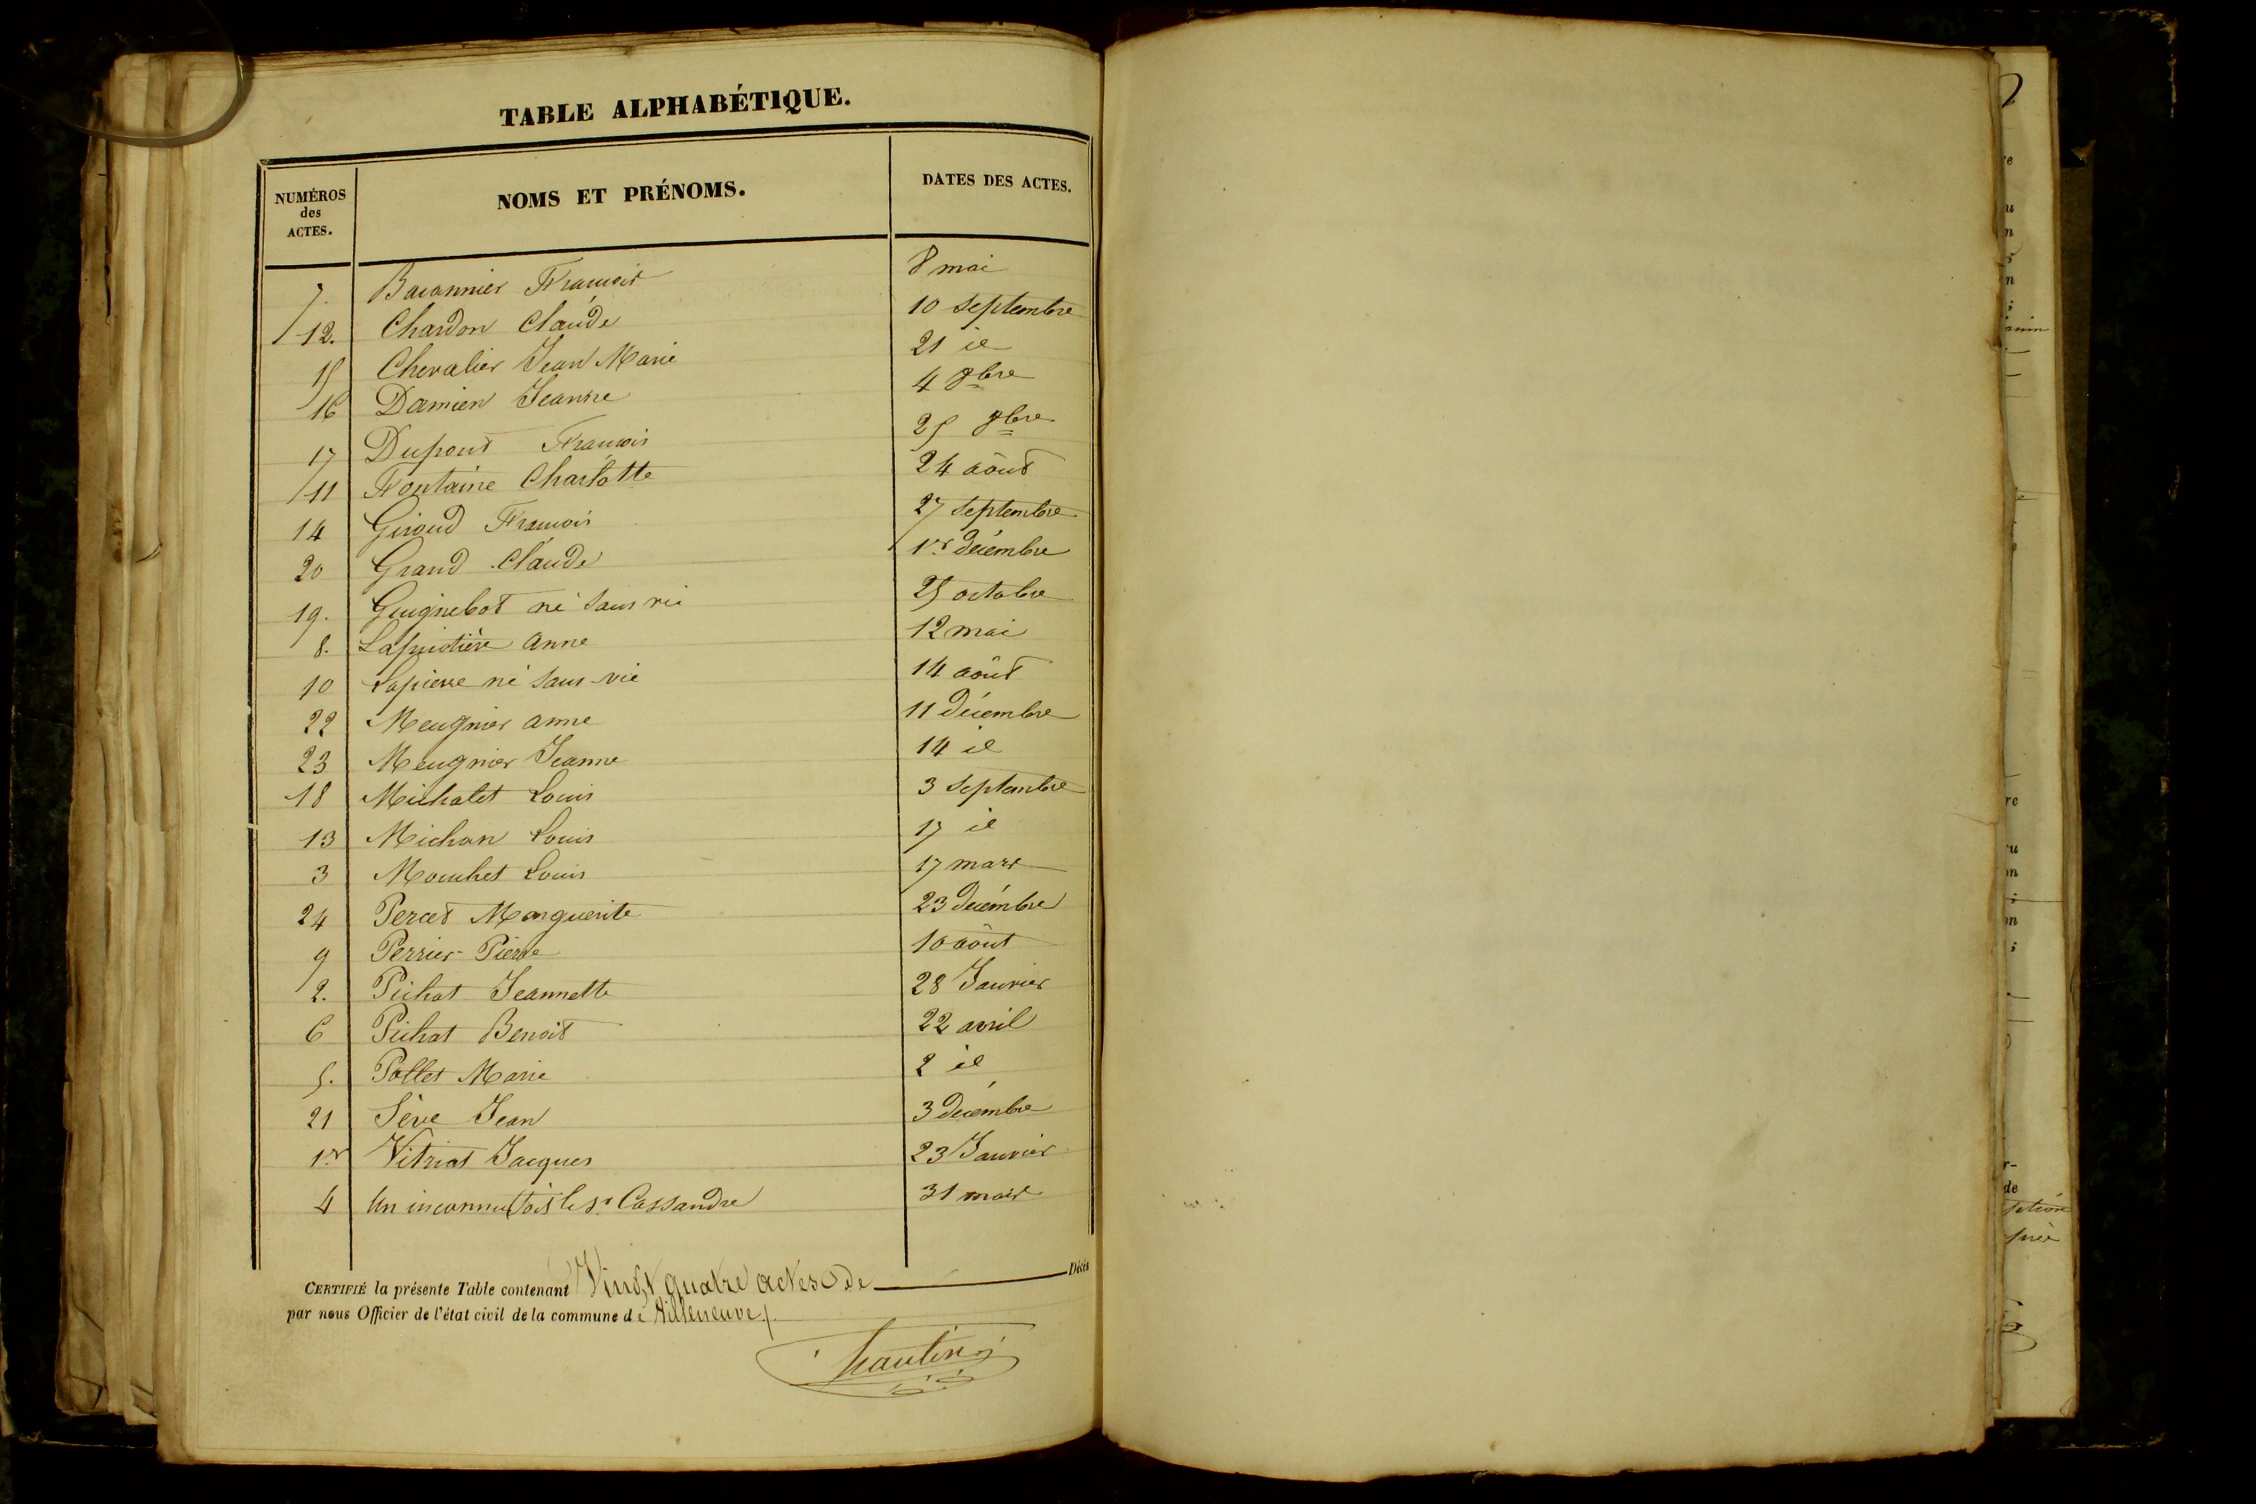 TABLE ALPHABÉTIQUE.
NUMÉROS des ACTES. NOMS ET PRÉNOMS. DATES DES ACTES.
7. Baconnier François 8 mai
12. Chardon Claude 10 septembre
15 Chevalier Jean Marie 21 id
16 Damien Jeanne 4 8bre
17 Dupont François 25 8bre
11 Fontaine Charlotte 24 aôut
14 Giroud François 27 septembre
20 Grand Claude 1er décembre
19. Guignebot né sans vie 25 octobre
8. Anne 12 mai
10 Lapierre né sans vie 14 aôut
22 Meugnier anne 11 décembre
23 Meugnier Jeanne 14 id
18 Michalet Louis 3 septembre
13 Michon Louis 17 id
3 Mouchet Louis 17 mars
24 Marguerite 23 décembre
9 Perrier Pierre 10 aôut
2. Pichat Jeannette 28 Janvier
6 Pichat Benoit 22 avril
5. Pollet Marie 2 id
21 Sève Jean 3 décembre
1er Vitriat Jacques 23 Janvier
4 Un inconnu Cassandre 31 mars
CERTIFIÉ la présente Table contenant Vingt quatre actes de Décès
par nous Officier de l'état civil de la commune de Villeneuve.